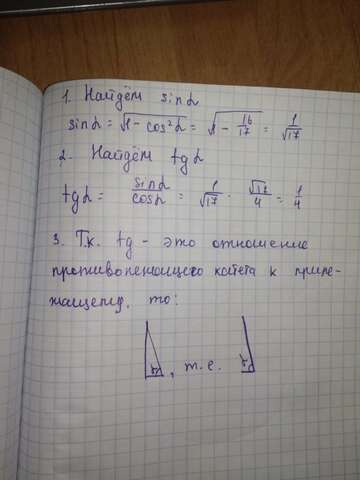 1. Найдём sin α
sin α = √(1 - cos²α) = √(1 - 16/17) = 1/√17
2. Найдём tg α
tg α = sin α / cos α = 1/√17 · √17/4 = 1/4
3. Т.к. tg - это отношение
противолежащего катета к приле-
жащему, то:
, т.е.